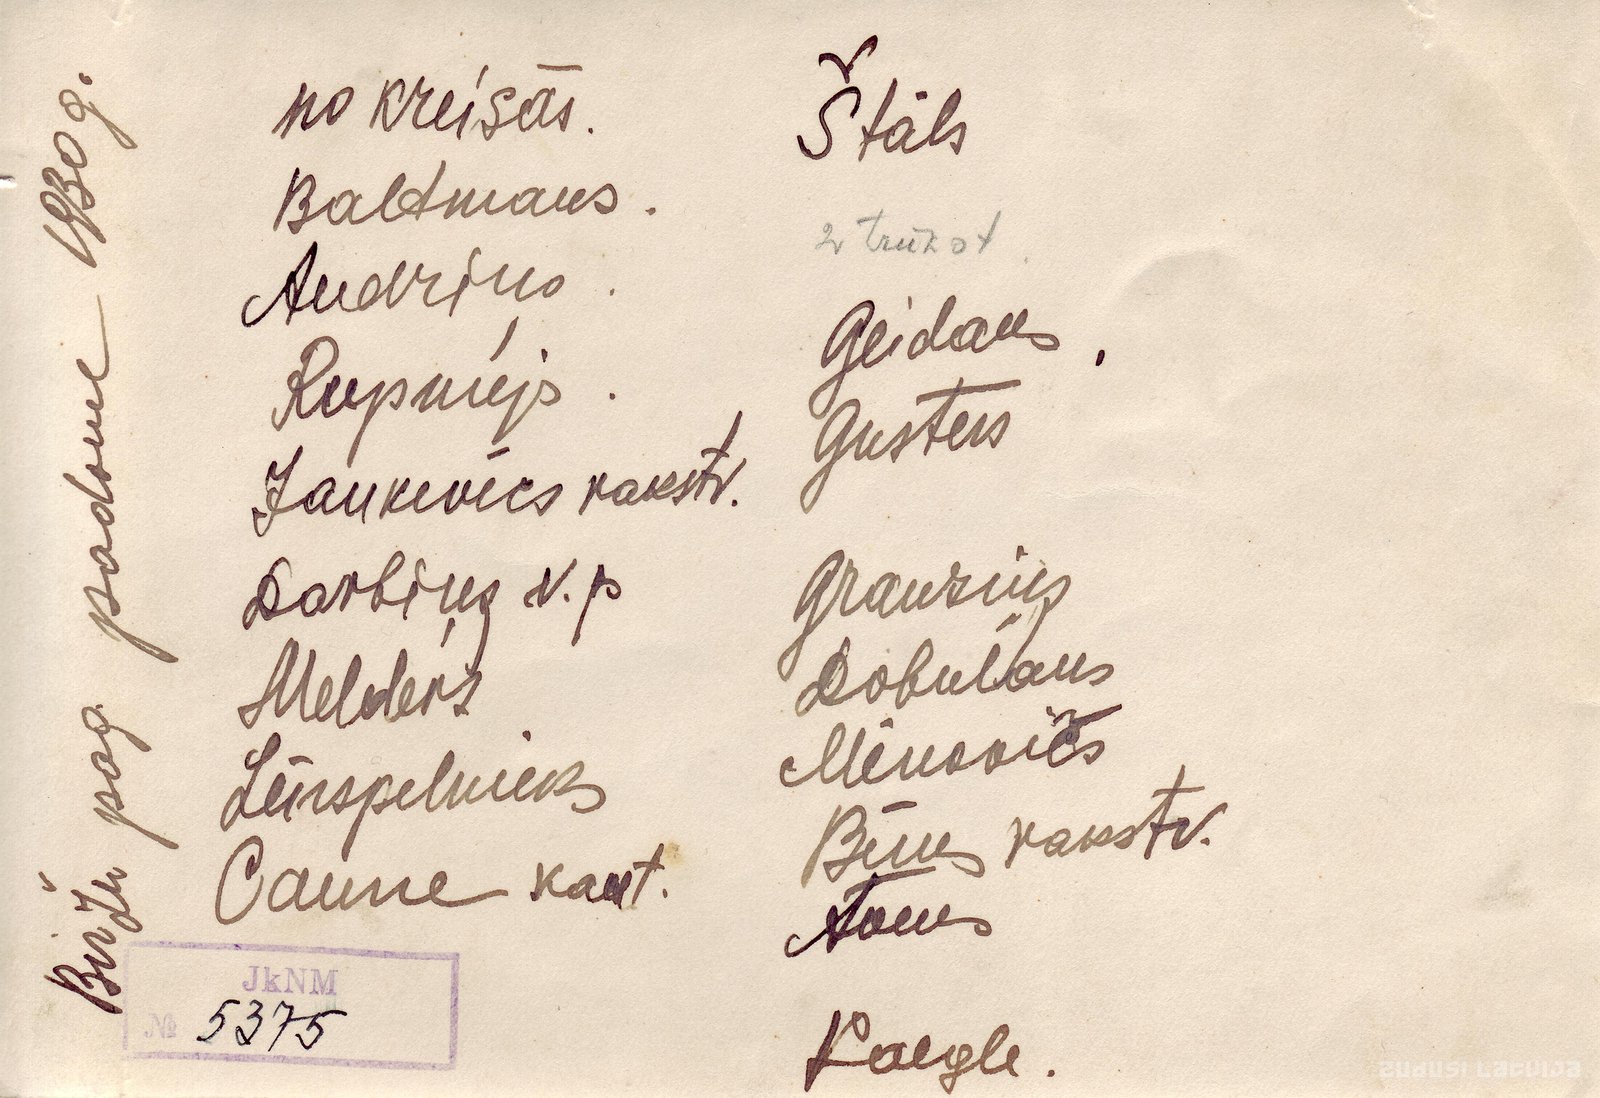 Biržu pag. padome 1930 g.
no kreisās.
Baltmans.
Andrins.
Rupmējs.
Jankevics rakstv.
Darbins v.p
Melders
Lēuspelnieks
Caune kant.
Štāls
2 trūkst.
Geidans,
Gusters
Grauzins
Dobulāns
Mēnovičs
Bēns rakstv.
Atons
Kaegle.
JkNM
№ 5375
zudusi Latvija